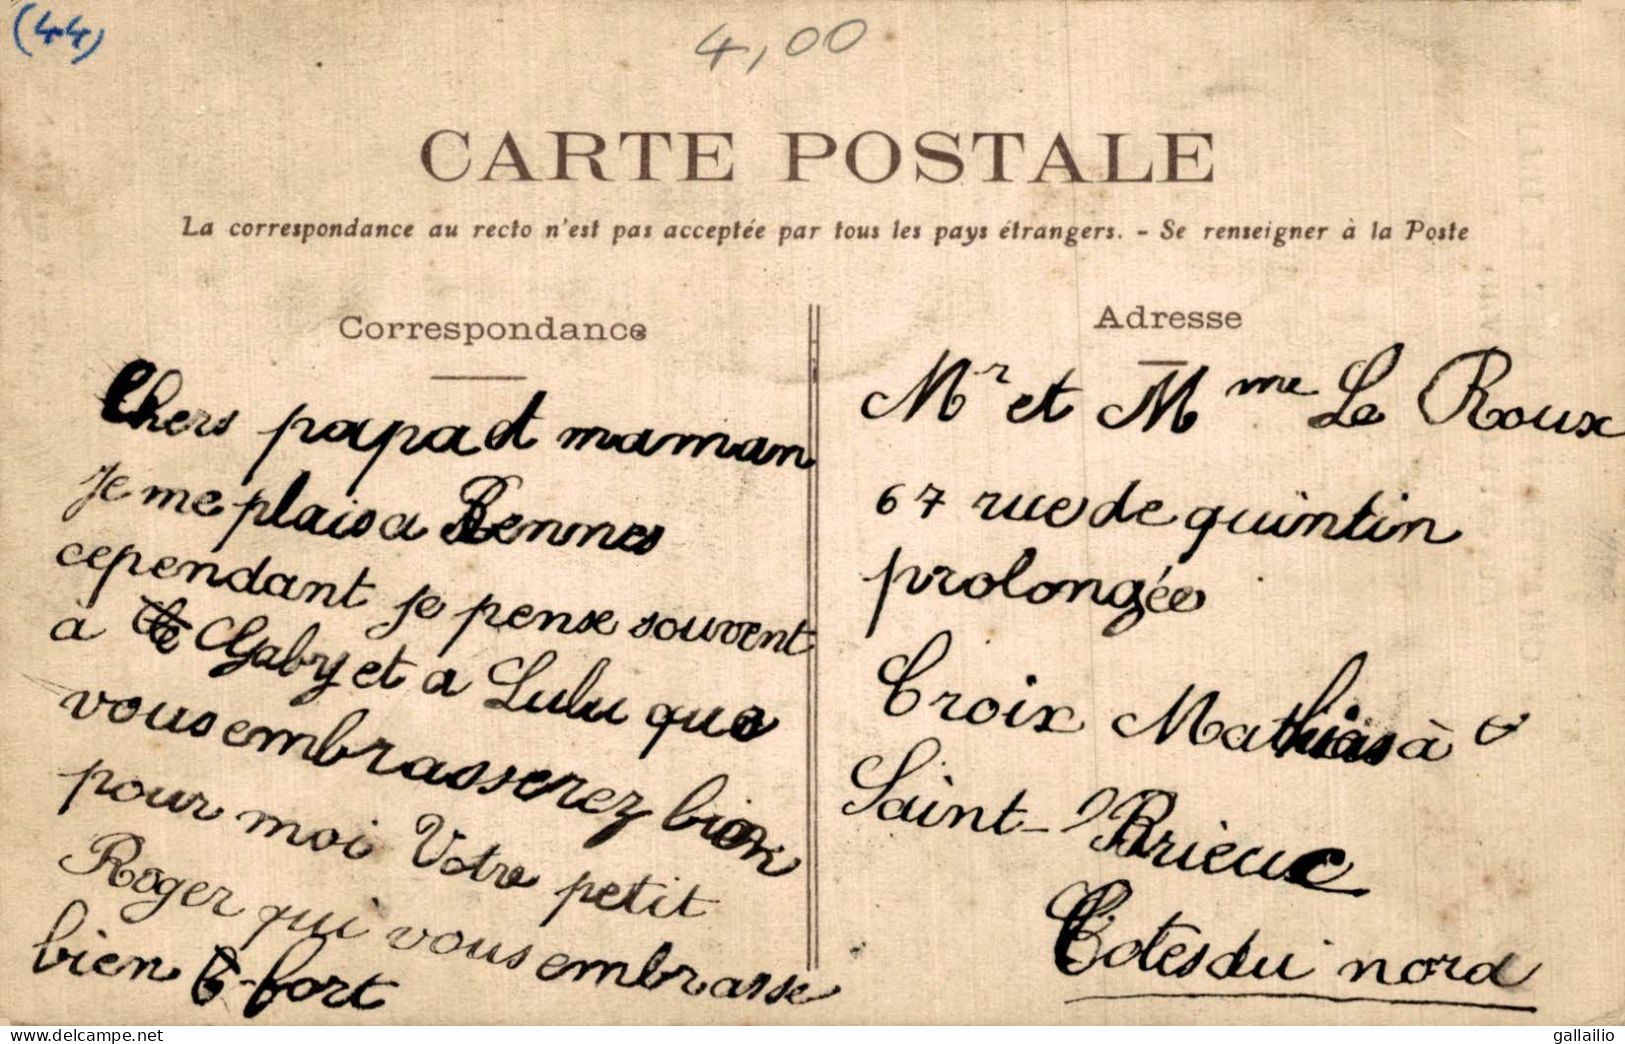 (44)
4,00
CARTE POSTALE
La correspondance au recto n'est pas acceptée par tous les pays étrangers. - Se renseigner à la Poste
Correspondance
Chers papa et maman
Je me plais a Rennes
cependant je pense souvent
à Gaby et a Lulu que
vous embrasserez bien
pour moi Votre petit
Roger qui vous embrasse
bien fort
Adresse
Mr et Mme Le Roux
67 rue de quintin
prolongée
Croix Mathias à
Saint-Brieuc
Cotes du nord
delcampe.net
gallailio